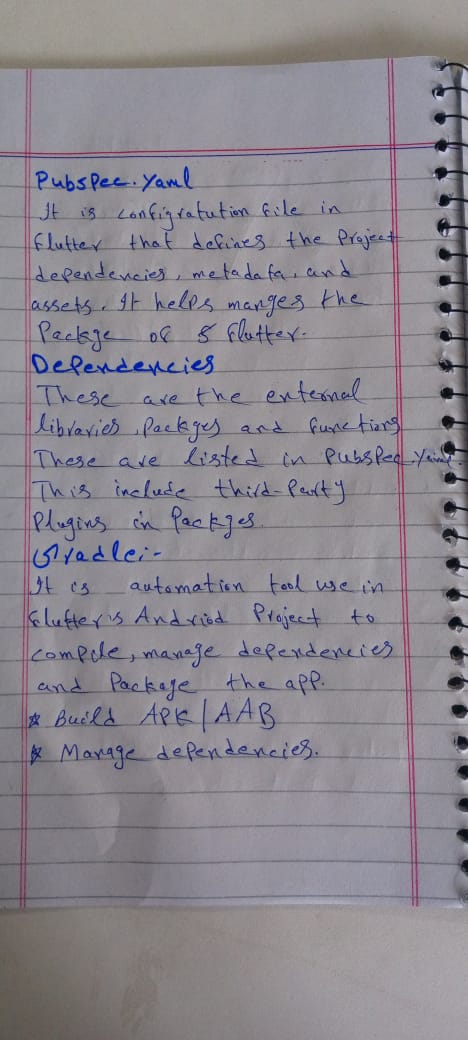 Pubspec.yaml
It is configratution file in
flutter that defines the Project
dependencies, metadata, and
assets. It helps manges the
Packge of 5 flutter.
Dependencies
These are the external
libraries, Packges and functions
These are listed in Pubspec.yaml.
This include third-Party
Plugins in Packges.
Gradle:-
It is automation tool use in
flutter's Andriod Project to
compile, manage dependencies
and Package the app.
* Build APK/AAB
* Manage dependencies.